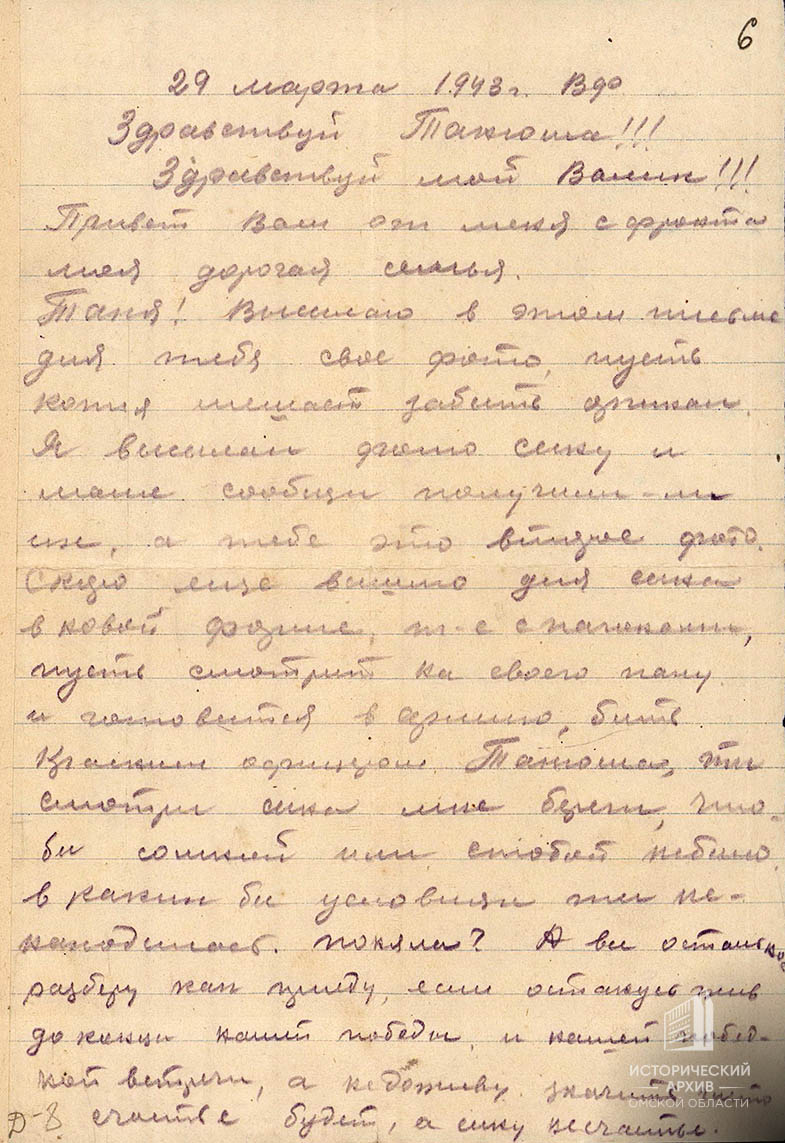 6
29 марта 1943 г. Вдр
Здравствуй Танюша!!!
Здравствуй мой Валик!!!
Привет Вам от меня с фронта
моя дорогая семья.
Таня! Высылаю в этом письме
для тебя свое фото, пусть
копия мешает забыть
Я высылал фото сыну и
маме сообщи получили-ли
их, а тебе это второе фото.
Скоро еще вышлю для сына
в новой форме, т-е с пагонами,
пусть смотрит на своего папу
и готовится в армию, быть
Красным офицером. Танюша, ты
смотри сына мне береги, что-
бы сомной или стобой небыло,
в каких бы условиях ты не-
находилась. поняла? А все остальное
разберу как приеду, если останусь жив
до конца нашей победы, и нашей побед-
ной встречи, а недоживу значит
счастье будет, а сыну несчастье.
Д-8
ИСТОРИЧЕСКИЙ
АРХИВ
ОМСКОЙ ОБЛАСТИ